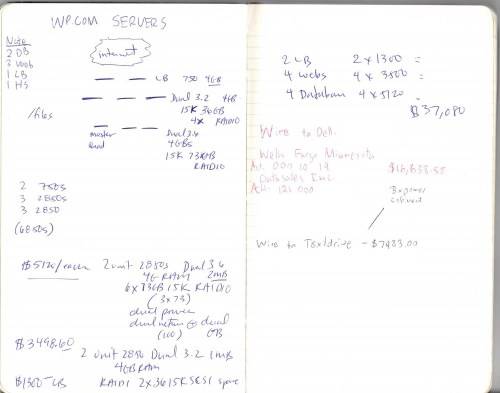 WP.COM SERVERS
Note
2 DB
3 Web
1 LB
1 HS
internet
LB 750 4GB
Dual 3.2 4GB
15K 36GB
4x RAID10
/files
master
Dual 3.6
4GBs
15K 73GB
RAID10
2 750s
3 2850s
3 2850
(6850s)
$5120/each 2 unit 2850s Dual 3.6
4G RAM 2MB
6x73GB 15K RAID10
(3x73)
dual power
dual
$3498.60
2 unit 2850 Dual 3.2 1MB
4GB RAM
$1300 - LB RAID1 2x36 15K SCSI
2 LB 2 x 1300 =
4 Webs 4 x 3500 =
4 Database 4 x 5120
$37,080
Wire to Dell
Wells Fargo Minnesota
Datasales Inc.
$16,638.55
Wire to Textdrive - $7483.00